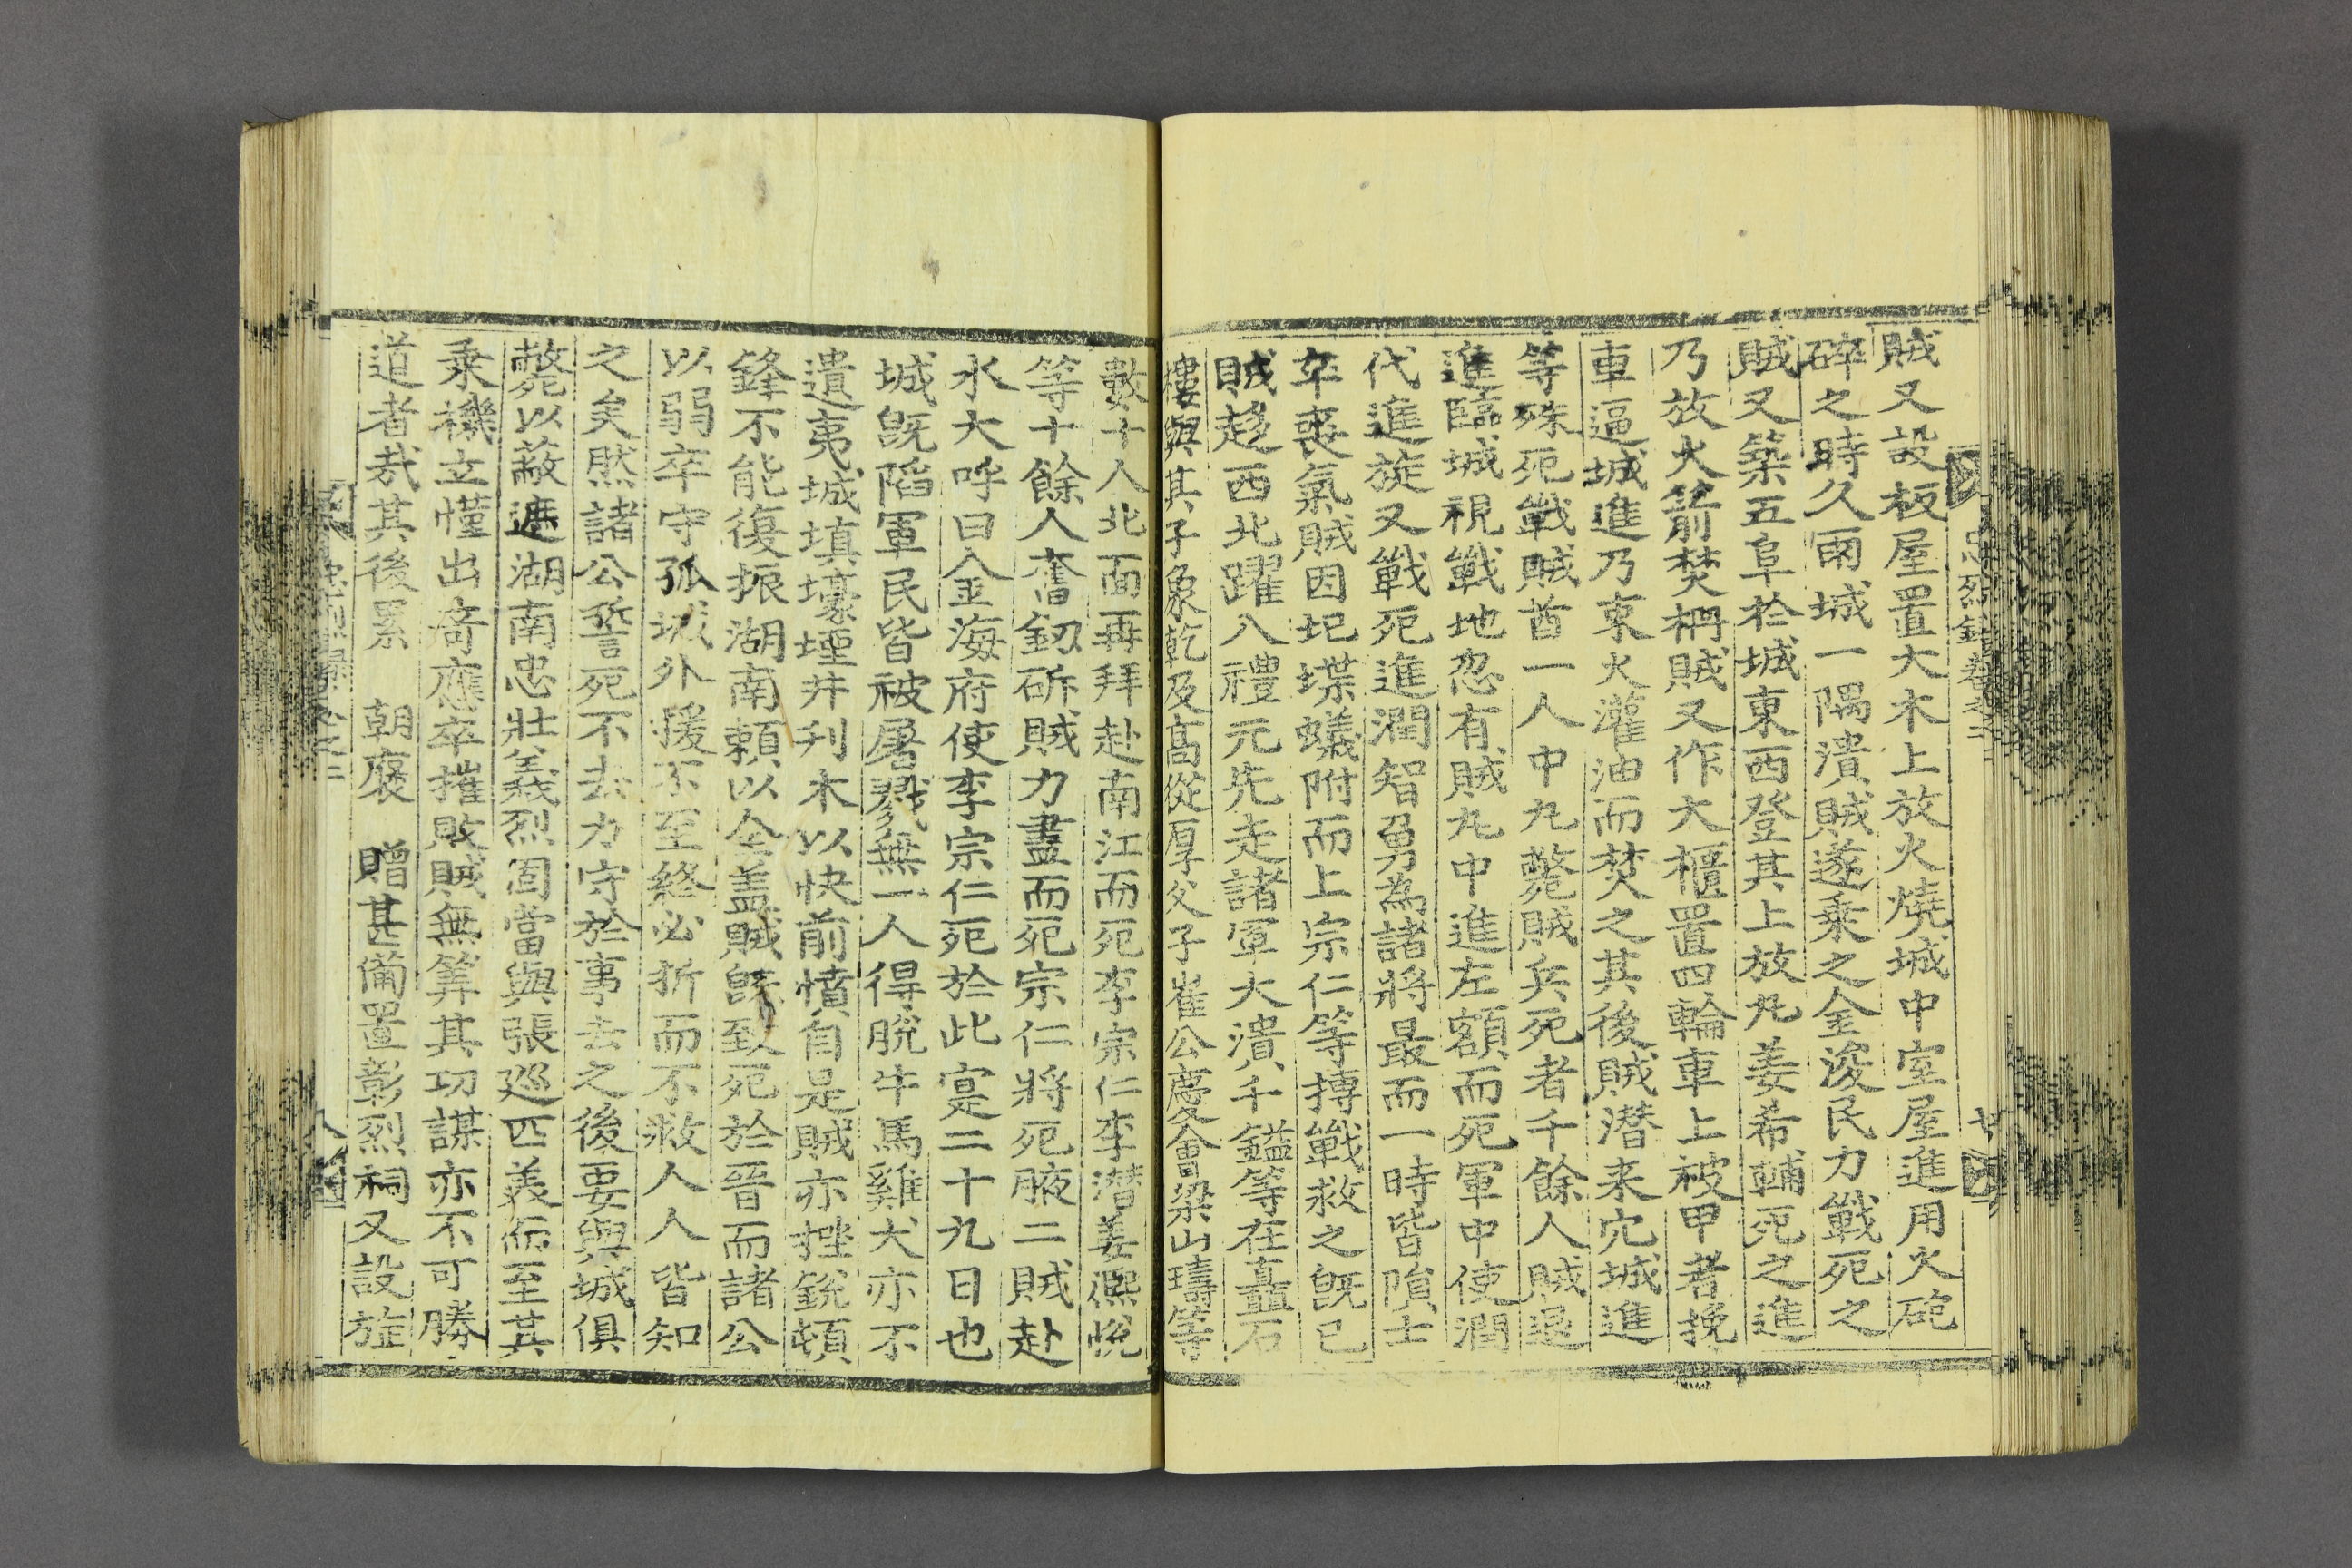 忠烈錄卷之二
賊又設板屋置大木上放火燒城中室屋進用火砲
碎之時久雨城一隅潰賊遂乗之金浚民力戰死之
賊又築五阜於城東西登其上放丸姜希輔死之進
乃放火箭焚柵賊又作大櫃置四輪車上被甲者挽
車逼城進乃束火灌油而焚之其後賊潛来穴城進
等殊死戰賊酋一人中丸斃賊兵死者千餘人賊退
進臨城視戰地忽有賊丸中進左額而死軍中使潤
代進旋又戰死進潤智勇為諸將最而一時皆隕士
卒喪氣賊因圮堞蟻附而上宗仁等搏戰救之旣已
賊趍西北躍入禮元先走諸軍大潰千鎰等在矗石
樓與其子象乾及高從厚父子崔公慶會梁山璹等
數十人北面再拜赴南江而死李宗仁李潛姜熙悅
等十餘人奮釰斫賊力盡而死宗仁將死腋二賊赴
水大呼曰金海府使李宗仁死於此寔二十九日也
城旣䧟軍民皆被屠戮無一人得脫牛馬雞犬亦不
遺夷城填壕堙井刋木以快前憤自是賊亦挫銳頓
鋒不能復振湖南頼以全盖賊旣致死於晉而諸公
以弱卒守孤城外援不至終必折而不救人人皆知
之矣然諸公誓死不去力守於事去之後要與城俱
斃以蔽遮湖南忠壯義烈固當與張廵匹美而至其
乗機立慬出奇應卒摧敗賊無筭其功謀亦不可勝
道者哉其後累　朝襃　贈甚備置彰烈祠又設旌